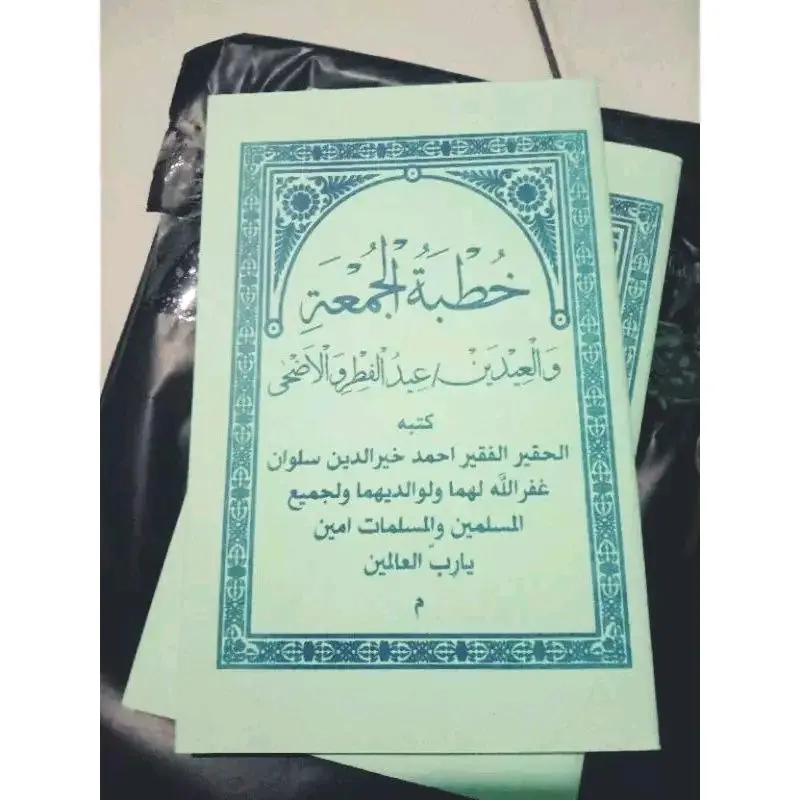 خُطْبَةُ الْجُمْعَةِ
وَالْعِيْدَيْنِ / عِيْدُ الْفِطْرِ وَالْأَضْحَى
كتبه
الحقير الفقير احمد خيرالدين سلوان
غفر اللّٰه لهما ولوالديهما ولجميع
المسلمين والمسلمات امين
ياربّ العالمين
م